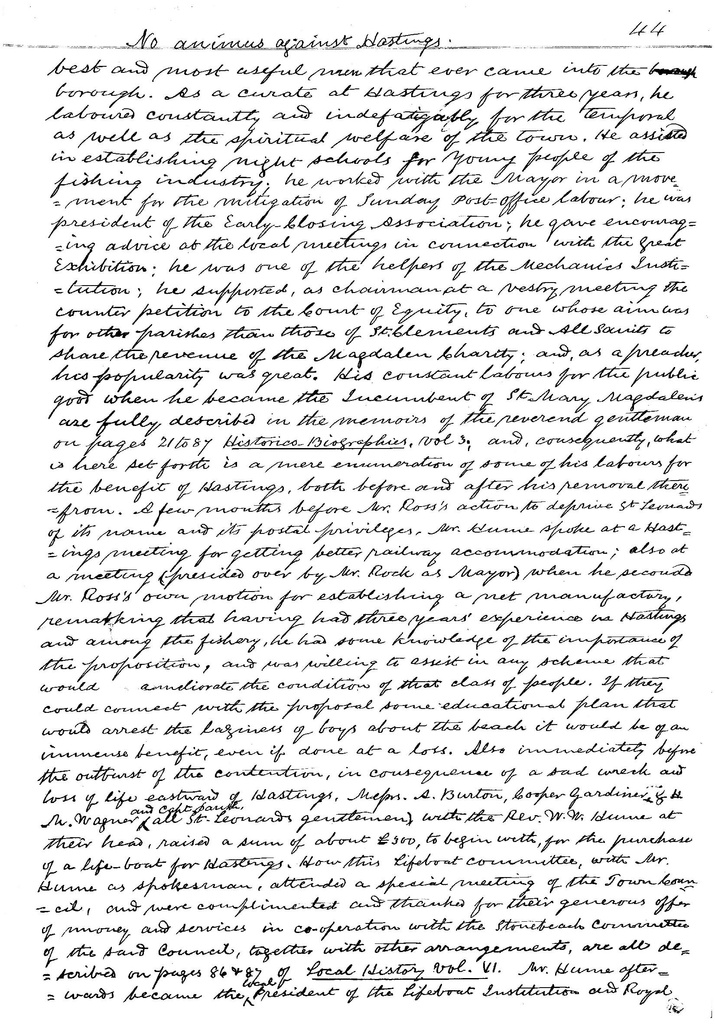 44
No animus against Hastings.
best and most useful men that ever came into the
borough. As a curate at Hastings for three years, he
laboured constantly and indefatigably for the temporal
as well as the spiritual welfare of the town. He assisted
in establishing night schools for young people of the
fishing industry; he worked with the Mayor in a move-
=ment for the mitigation of Sunday Post-office labour; he was
president of the Early-Closing Association; he gave encourag=
=ing advice at the local meetings in connection with the Great
Exhibition; he was one of the helpers of the Mechanics Insti=
=tution; he supported, as chairman at a vestry meeting the
counter petition to the Court of Equity, to one whose aim was
for other parishes than those of St. Clements and All Saints to
share the revenue of the Magdalen Charity; and, as a preacher,
his popularity was great. His constant labours for the public
good when he became the Incumbent of St. Mary Magdalen's
are fully described in the memoirs of the reverend gentleman
on pages 21 to 87 Historico-Biographies, vol 3; and, consequently, what
is here set forth is a mere enumeration of some of his labours for
the benefit of Hastings, both before and after his removal there=
=from. A few months before Mr. Ross's action to deprive St Leonards
of its name and its postal privileges, Mr. Hume spoke at a Hast=
=ings meeting for getting better railway accommodation; also at
a meeting (presided over by Mr. Rock as Mayor) when he seconded
Mr. Ross's own motion for establishing a net manufactory,
remarking that having had three years' experience in Hastings
and among the fishery, he had some knowledge of the importance of
the proposition, and was willing to assist in any scheme that
would ameliorate the condition of that class of people. If they
could connect with the proposal some educational plan that
would arrest the laziness of boys about the beach it would be of an
immense benefit, even if done at a loss. Also immediately before
the outburst of the contention, in consequence of a sad wreck and
loss of life eastward of Hastings, Messrs. A. Burton, Cooper Gardiner, & H
and Capt. Smith
M. Wagner (all St. Leonards gentlemen) with the Rev. W. W. Hume at
their head, raised a sum of about £300, to begin with, for the purchase
of a life-boat for Hastings. How this Lifeboat committee, with Mr.
Hume as spokesman, attended a special meeting of the Town Coun
=cil, and were complimented and thanked for their generous offer
of money and services in co-operation with the Stonebeach Committee
of the said Council, together with other arrangements, are all de=
=scribed on pages 86 & 87 of Local History Vol. VI. Mr. Hume after=
local
=wards became the President of the Lifeboat Institution and Royal